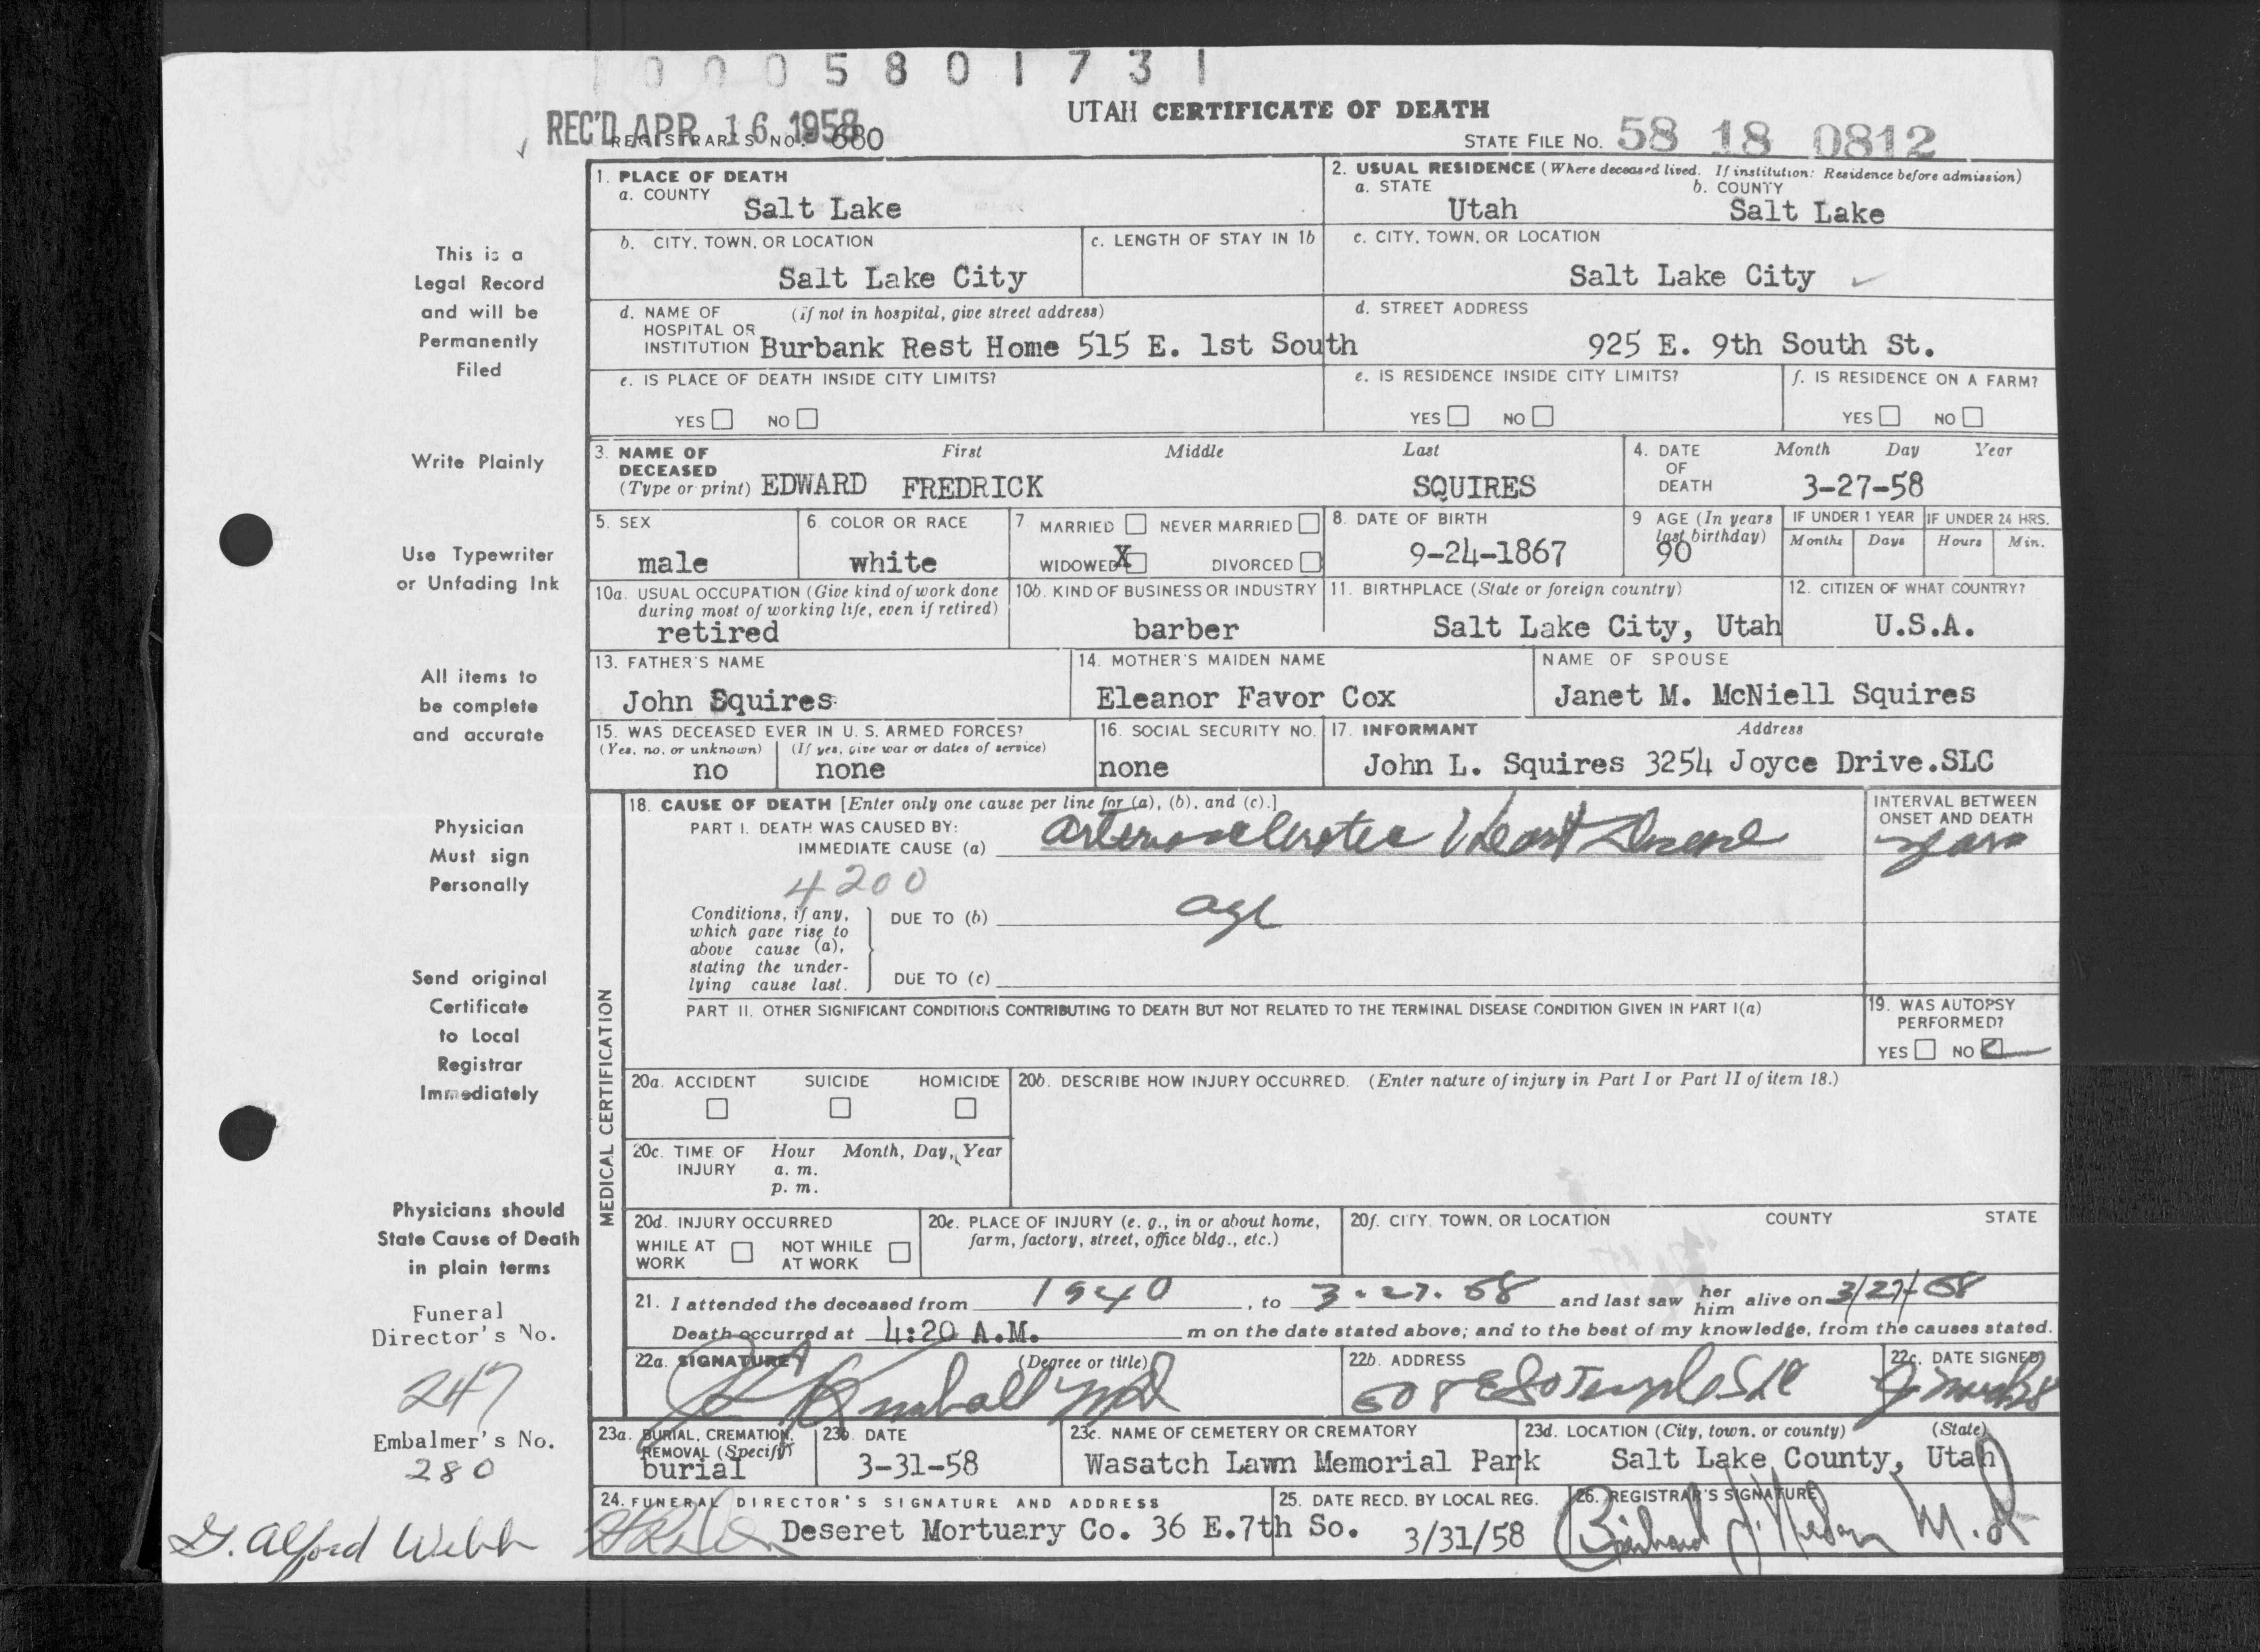 0 0 0 5 8 0 1 7 3 1
UTAH CERTIFICATE OF DEATH
REC'D APR 16 1958
REGISTRAR'S NO. 680
STATE FILE NO. 58 18 0812
1. PLACE OF DEATH
a. COUNTY
Salt Lake
2. USUAL RESIDENCE (Where deceased lived. If institution: Residence before admission)
a. STATE
Utah
b. COUNTY
Salt Lake
b. CITY, TOWN, OR LOCATION
Salt Lake City
c. LENGTH OF STAY IN 1b
c. CITY, TOWN, OR LOCATION
Salt Lake City
d. NAME OF HOSPITAL OR INSTITUTION
(if not in hospital, give street address)
Burbank Rest Home 515 E. 1st South
d. STREET ADDRESS
925 E. 9th South St.
e. IS PLACE OF DEATH INSIDE CITY LIMITS?
YES NO
e. IS RESIDENCE INSIDE CITY LIMITS?
YES NO
f. IS RESIDENCE ON A FARM?
YES NO
3. NAME OF DECEASED
(Type or print)
First Middle Last
EDWARD FREDRICK SQUIRES
4. DATE OF DEATH
Month Day Year
3-27-58
5. SEX
male
6. COLOR OR RACE
white
7 MARRIED NEVER MARRIED
WIDOWED X DIVORCED
8. DATE OF BIRTH
9-24-1867
9 AGE (In years last birthday)
90
IF UNDER 1 YEAR
Months Days
IF UNDER 24 HRS.
Hours Min.
10a. USUAL OCCUPATION (Give kind of work done
during most of working life, even if retired)
retired
10b. KIND OF BUSINESS OR INDUSTRY
barber
11. BIRTHPLACE (State or foreign country)
Salt Lake City, Utah
12. CITIZEN OF WHAT COUNTRY?
U.S.A.
13. FATHER'S NAME
John Squires
14. MOTHER'S MAIDEN NAME
Eleanor Favor Cox
NAME OF SPOUSE
Janet M. McNiell Squires
15. WAS DECEASED EVER IN U. S. ARMED FORCES?
(Yes, no, or unknown) (If yes, give war or dates of service)
no none
16. SOCIAL SECURITY NO.
none
17. INFORMANT Address
John L. Squires 3254 Joyce Drive.SLC
MEDICAL CERTIFICATION
18. CAUSE OF DEATH [Enter only one cause per line for (a), (b), and (c).]
PART I. DEATH WAS CAUSED BY:
IMMEDIATE CAUSE (a) Arteriosclerotic Heart Disease
INTERVAL BETWEEN
ONSET AND DEATH
years
4200
Conditions, if any,
which gave rise to
above cause (a),
stating the under-
lying cause last.
DUE TO (b) age
DUE TO (c)
PART II. OTHER SIGNIFICANT CONDITIONS CONTRIBUTING TO DEATH BUT NOT RELATED TO THE TERMINAL DISEASE CONDITION GIVEN IN PART I(a)
19. WAS AUTOPSY
PERFORMED?
YES NO
20a. ACCIDENT SUICIDE HOMICIDE
20b. DESCRIBE HOW INJURY OCCURRED. (Enter nature of injury in Part I or Part II of item 18.)
20c. TIME OF INJURY
Hour Month, Day, Year
a. m.
p. m.
20d. INJURY OCCURRED
WHILE AT WORK NOT WHILE AT WORK
20e. PLACE OF INJURY (e. g., in or about home,
farm, factory, street, office bldg., etc.)
20f. CITY, TOWN, OR LOCATION COUNTY STATE
21. I attended the deceased from 1940, to 3-27-58 and last saw her him alive on 3/27/58
Death occurred at 4:20 A.M. m on the date stated above; and to the best of my knowledge, from the causes stated.
22a. SIGNATURE (Degree or title)
Kimball MD
22b. ADDRESS
508 E So Temple SLC
22c. DATE SIGNED
23a. BURIAL, CREMATION,
REMOVAL (Specify)
burial
23b. DATE
3-31-58
23c. NAME OF CEMETERY OR CREMATORY
Wasatch Lawn Memorial Park
23d. LOCATION (City, town, or county) (State)
Salt Lake County, Utah
24. FUNERAL DIRECTOR'S SIGNATURE AND ADDRESS
Deseret Mortuary Co. 36 E.7th So.
25. DATE RECD. BY LOCAL REG.
3/31/58
26. REGISTRAR'S SIGNATURE
M.D.
This is a
Legal Record
and will be
Permanently
Filed
Write Plainly
Use Typewriter
or Unfading Ink
All items to
be complete
and accurate
Physician
Must sign
Personally
Send original
Certificate
to Local
Registrar
Immediately
Physicians should
State Cause of Death
in plain terms
Funeral
Director's No.
247
Embalmer's No.
280
G. Alford Webb